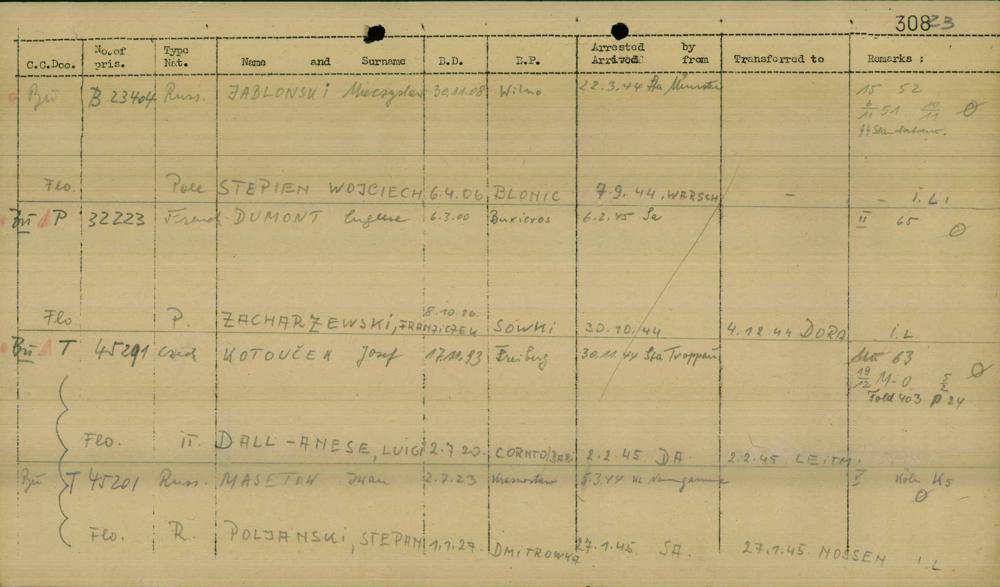 30823
C.C.Doc. No.of pris. Type Nat. Name and Surname B.D. B.P. Arrested by Arrived from Transferred to Remarks :
Bu B 23404 Russ. JABLONSKI Mieczyslaw 30.11.08 Wilno 22.3.44 Sta Münster 15 52
6/11 51 10/11
Flo. Pole STEPIEN WOJCIECH 6.4.06 BLONIC 7.9.44, WARSCH — – I.L.
Bu P 32223 French DUMONT Eugene 6.3.00 Buxieres 6.2.45 Sa II 65
Flo P. ZACHARZEWSKI, FRANZICZEK 8.10.26 SOWKI 30.10.44 4.12.44 DORA I.L
Bu T 45291 Czech KOTOUČEK Josef 17.11.93 Freiberg 30.11.44 Sta Troppau 63
19/12 M-O 5/2
Fold 403 p 24
Flo. IT. DALL-ANESE, LUIGI 2.7.20. 2.2.45 DA 2.2.45 LEITM.
Bu T 45201 Russ. MASETOW Iwan 2.7.23 5.3.44 V Köln K5
Flo. R. POLJANSKI, STEPAN 1.1.27. DMITROWKA 27.1.45. SA. 27.1.45 NOSSEN I.L.